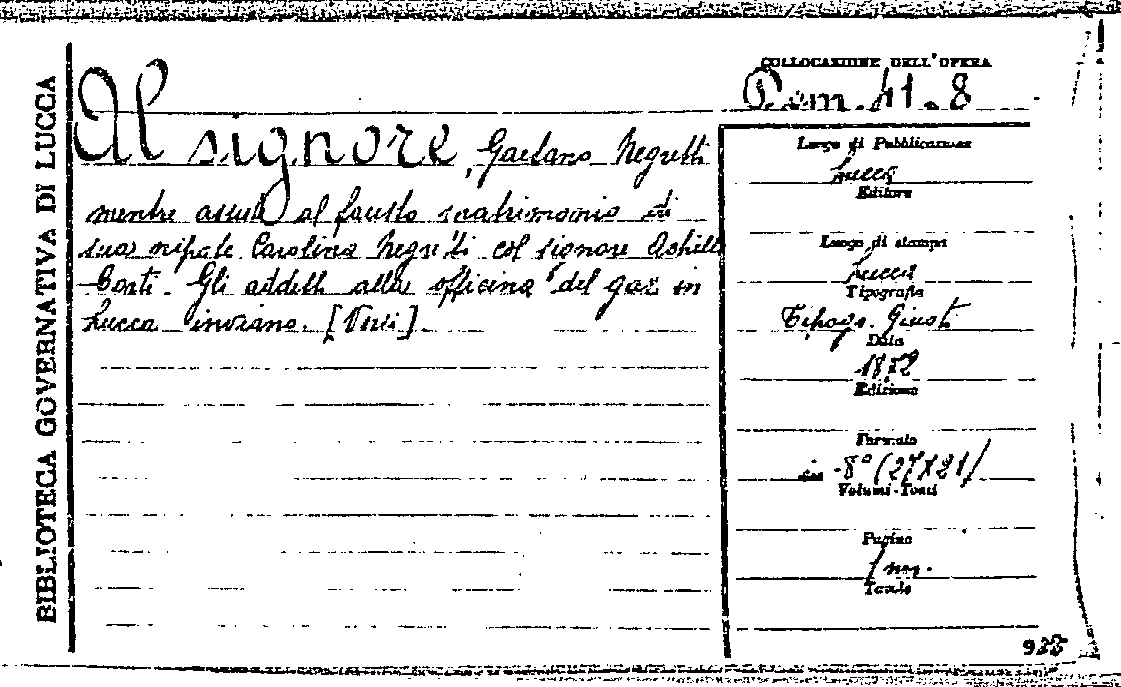 BIBLIOTECA GOVERNATIVA DI LUCCA
COLLOCAZIONE DELL'OPERA
41.8
Al signore Gaetano Negretti
mentre assiste al fausto matrimonio di
sua nipote Carolina Negretti col signore Achille
Conti. Gli addetti alla officina del gaz in
Lucca inviano. [Versi]
Luogo di Pubblicazione
Lucca
Editore
Luogo di stampa
Lucca
Tipografia
Tipogr. Giusti
Data
Edizione
Formato
in-8° (27x21)
Volumi-Tomi
Pagine
Tavole